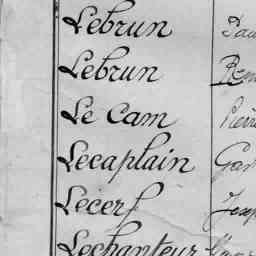 Lebrun
Lebrun
Le Cam
Lecaplain
Lecerf
Lechanteur